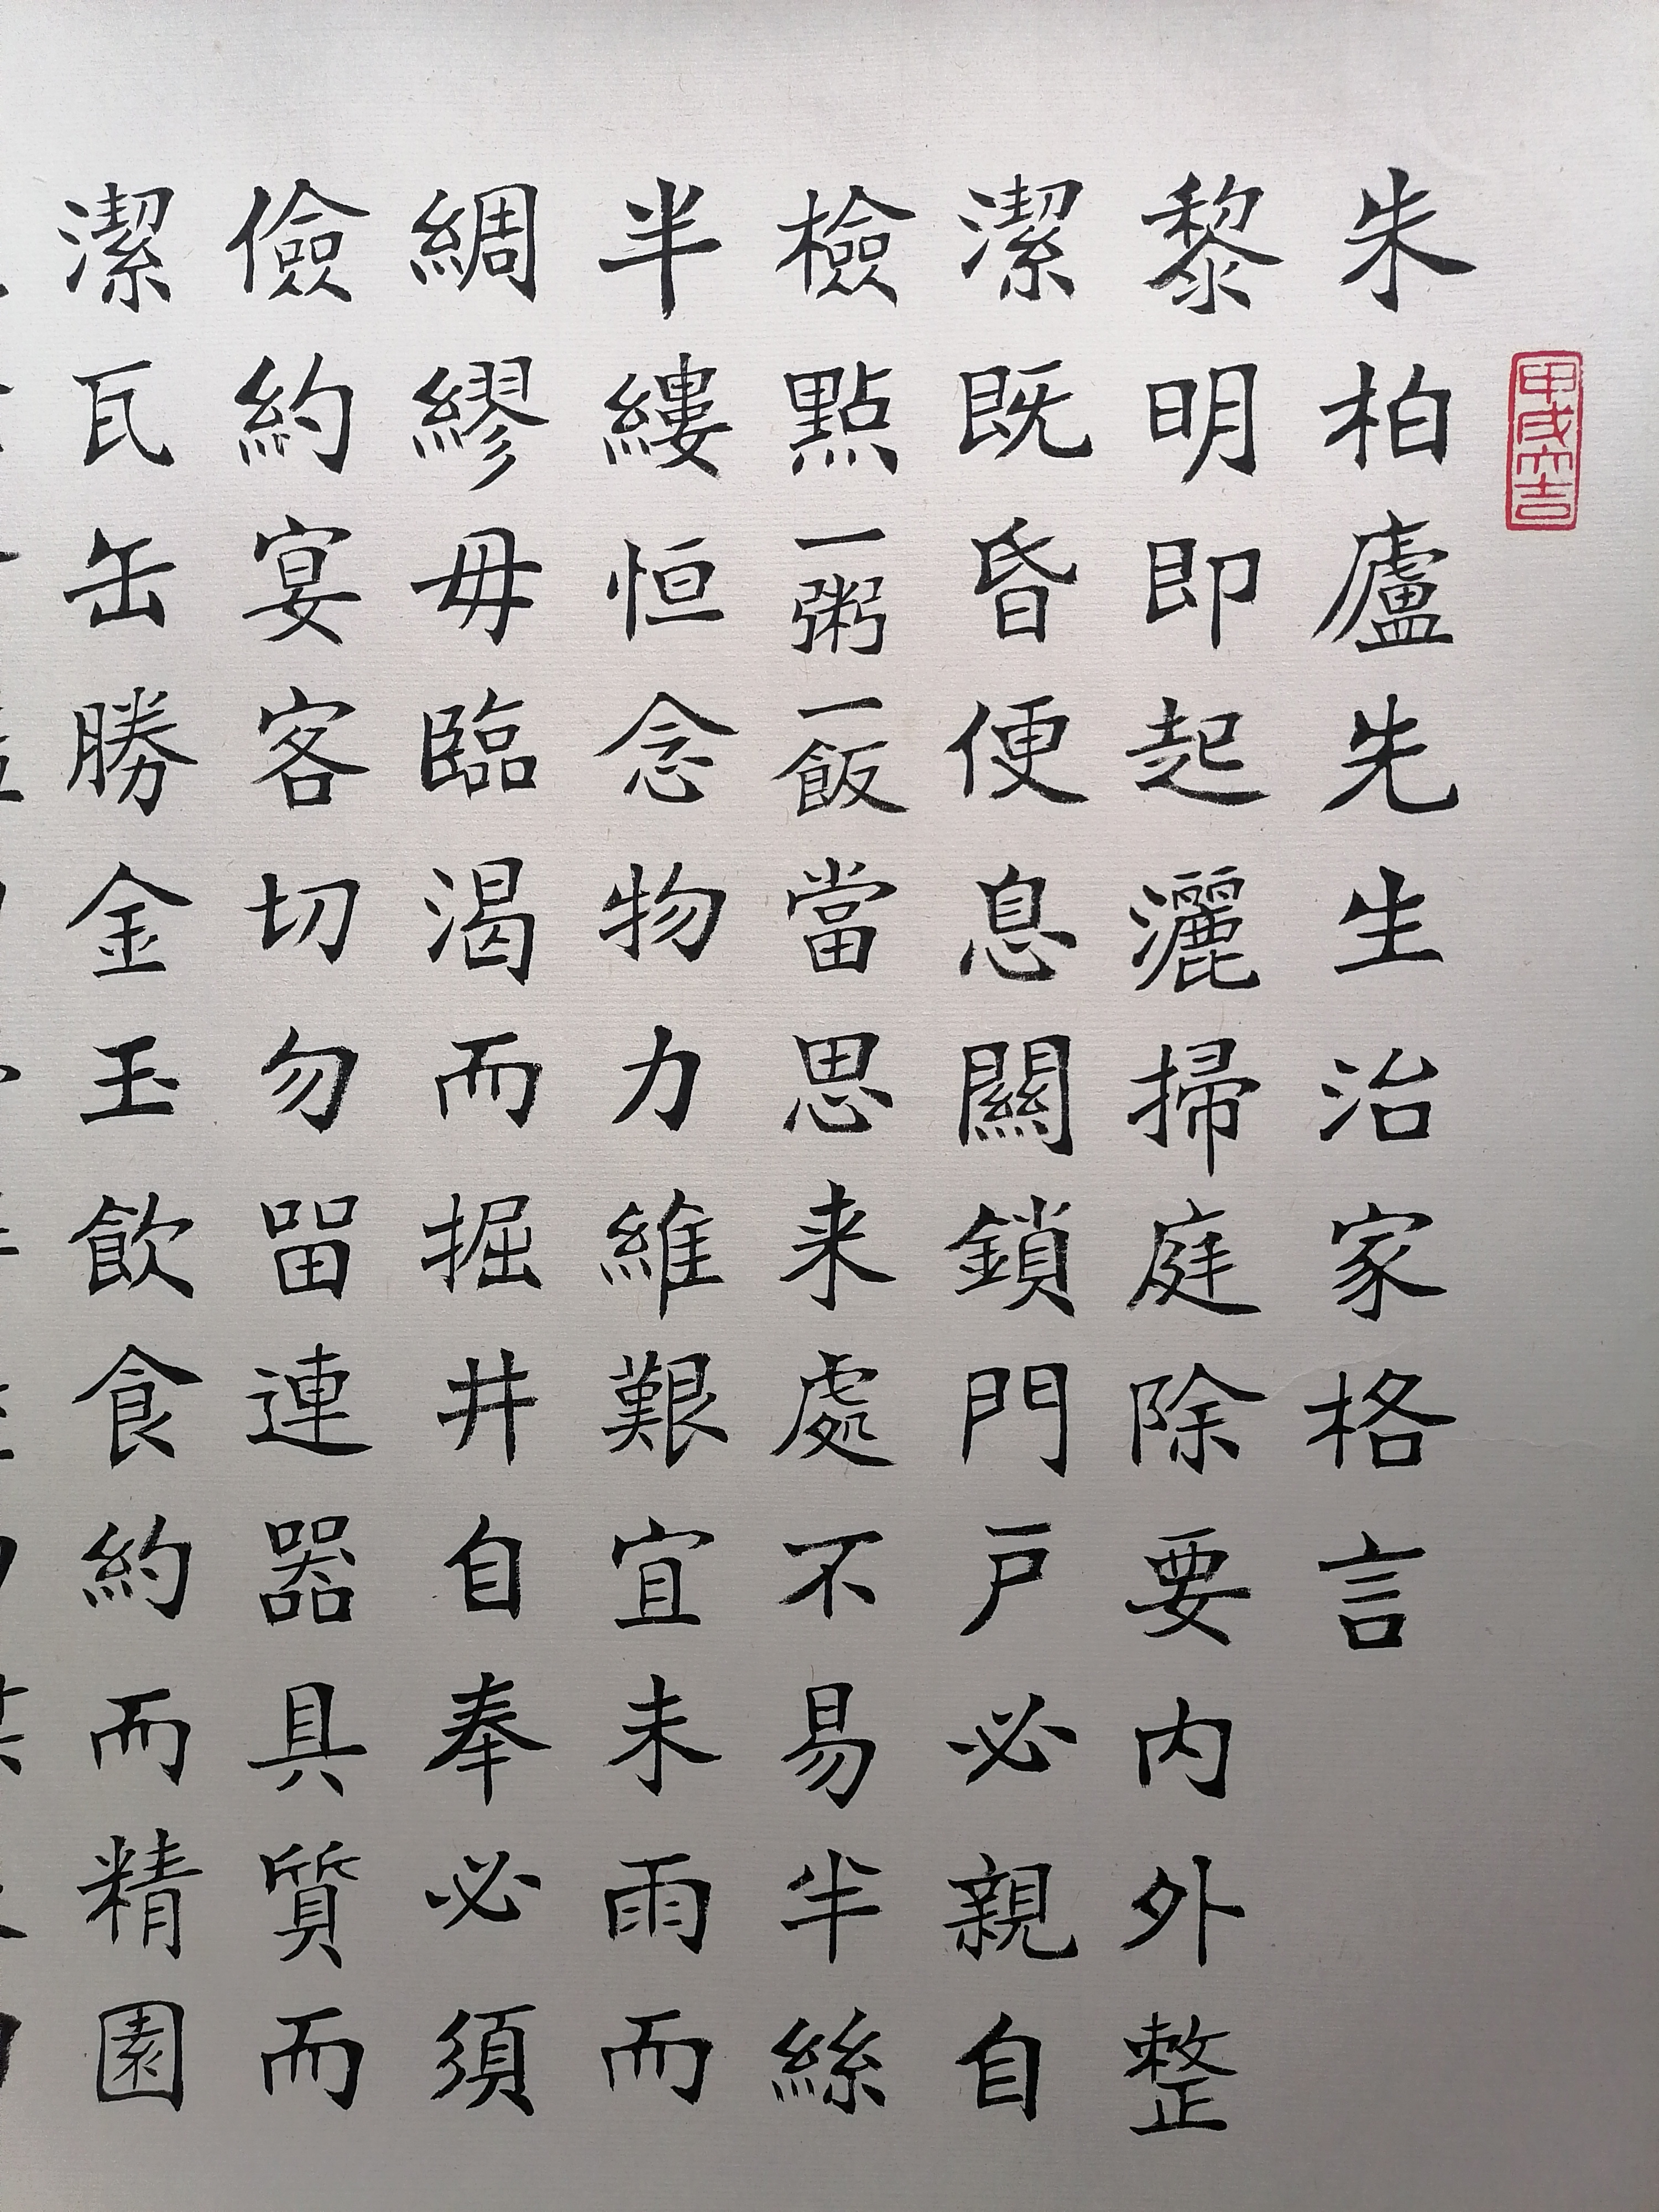 甲戌大吉
朱柏廬先生治家格言
黎明即起灑掃庭除要内外整
潔既昏便息關鎖門戶必親自
檢點一粥一飯當思来處不易半絲
半縷恒念物力維艱宜未雨而
綢繆毋臨渴而掘井自奉必須
儉約宴客切勿畱連器具質而
潔瓦缶勝金玉飲食約而精園